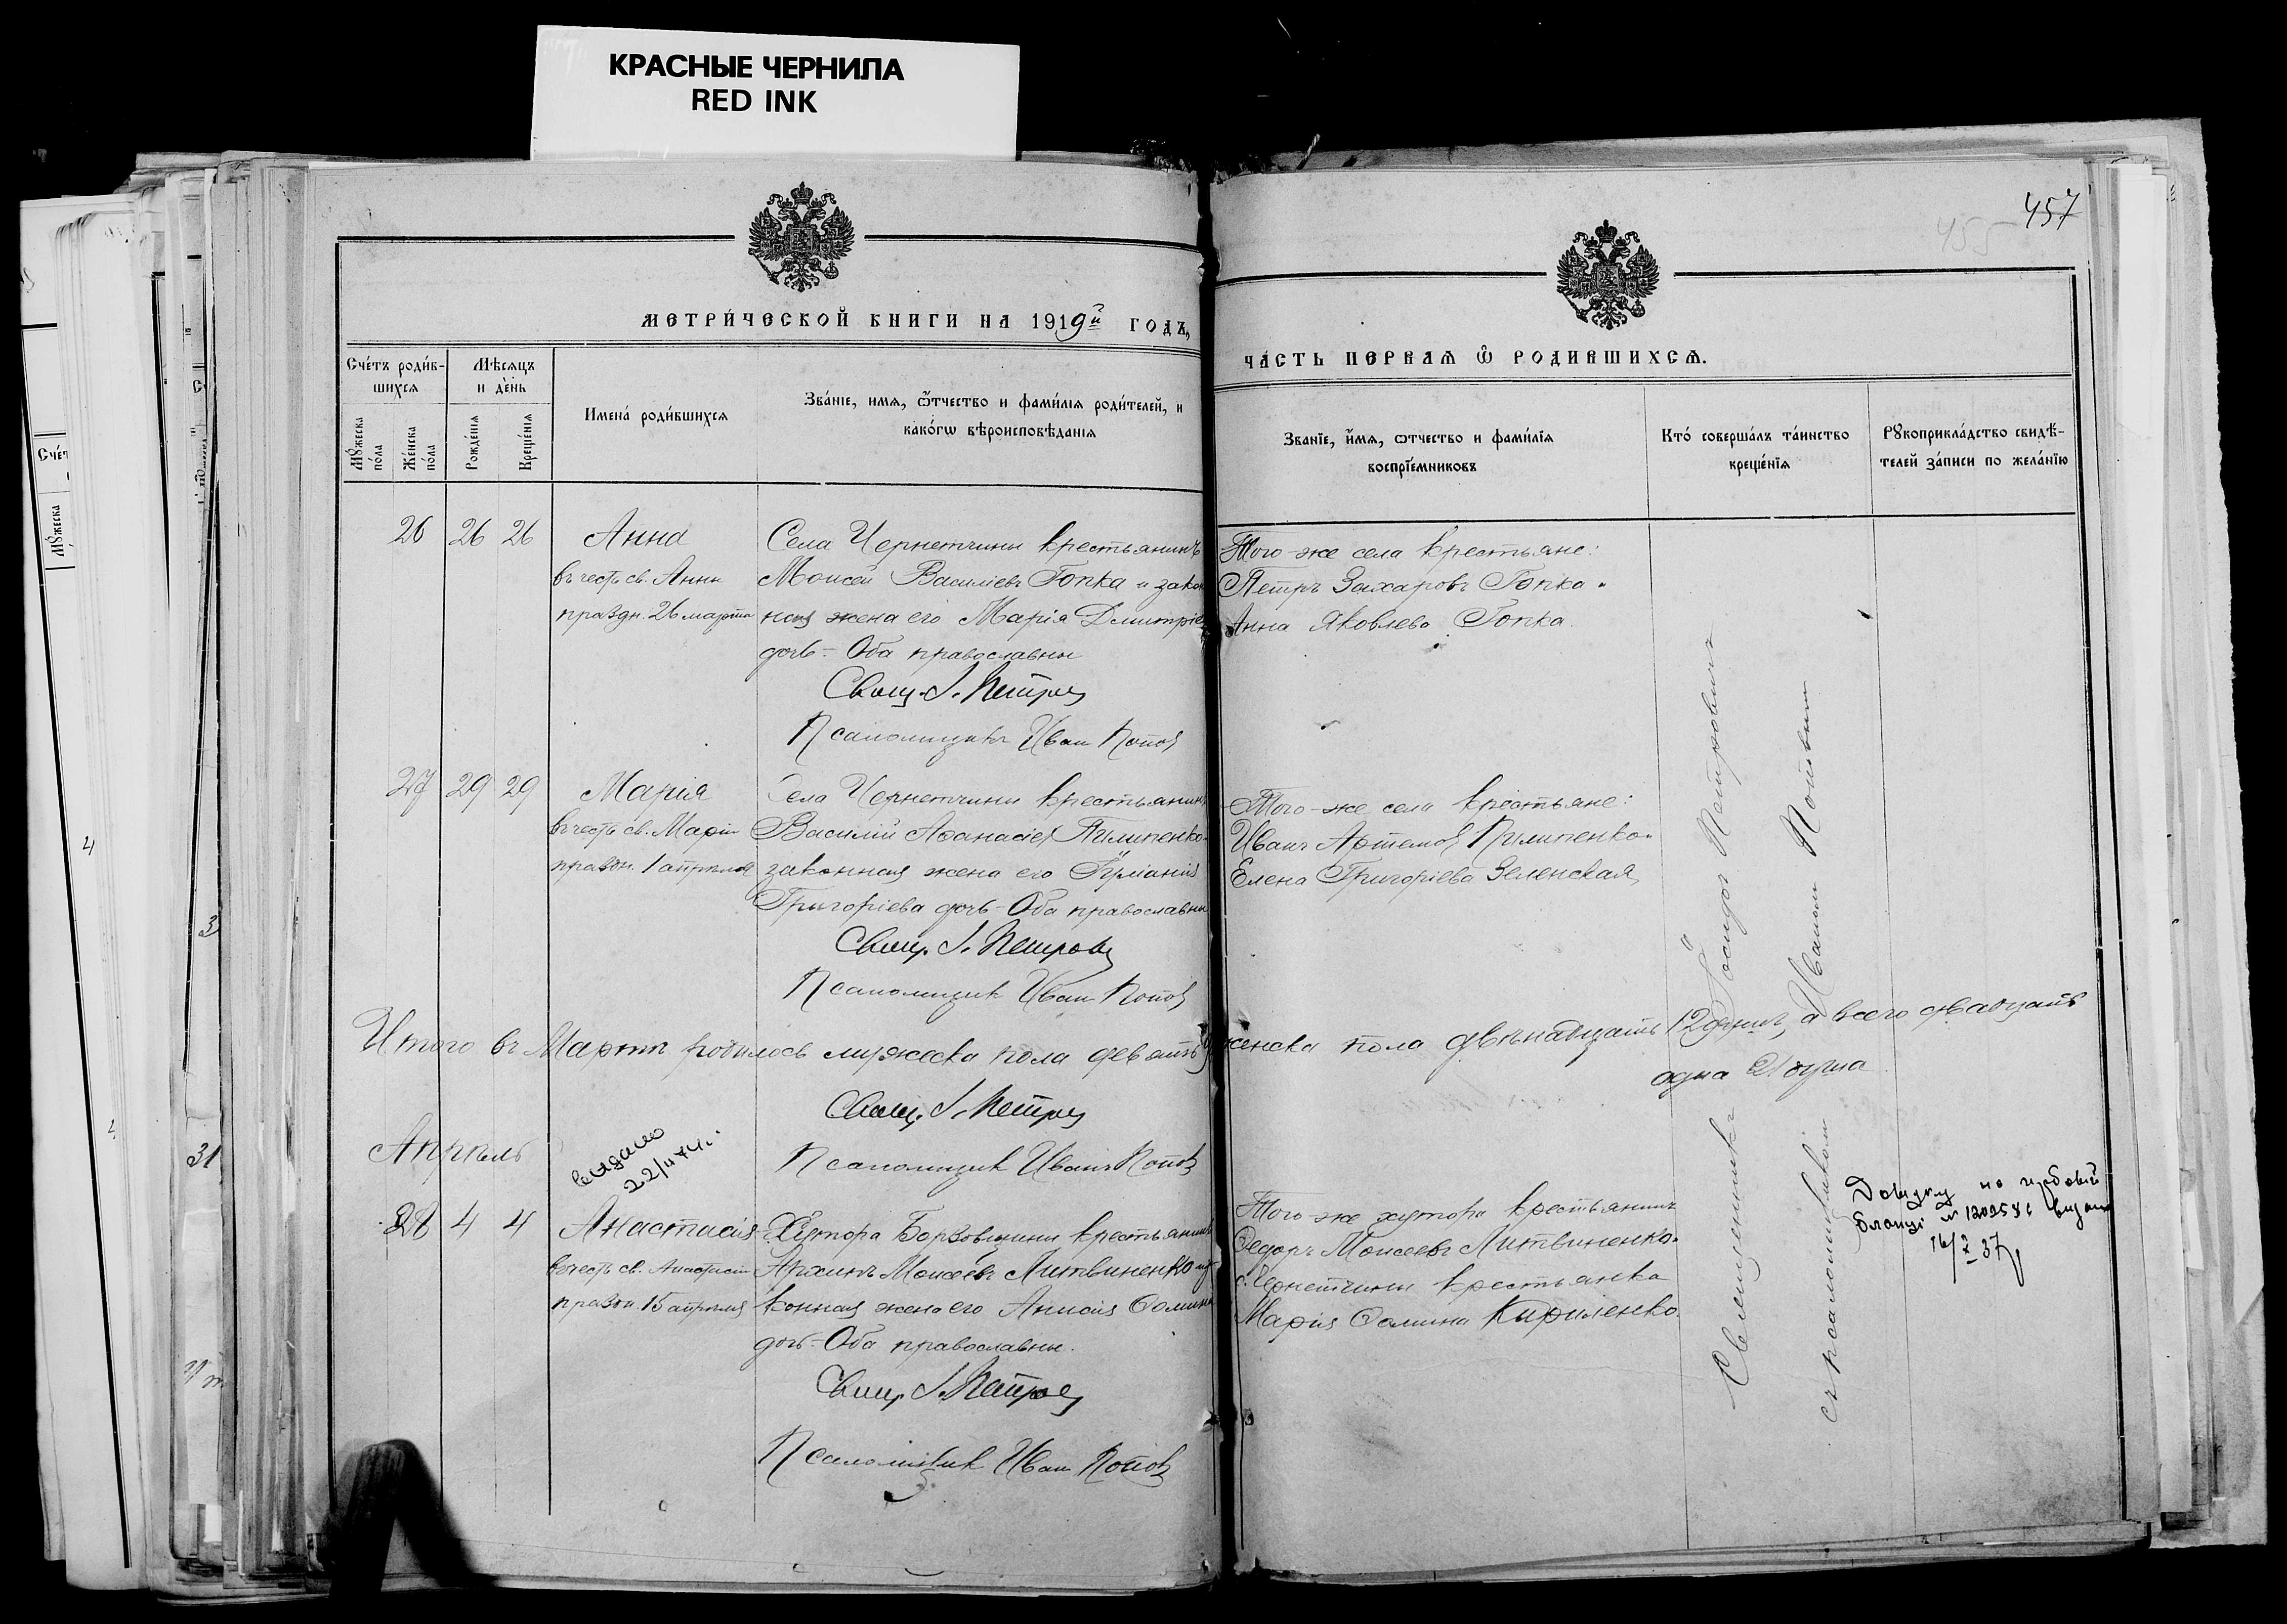 КРАСНЫЕ ЧЕРНИЛА
RED INK
457
455
МЕТРИ́ЧЕСКОЙ КНИГИ НА 1919й ГОДЪ,
ЧА́СТЬ ПЕРВАЯ Ѿ РОДИВШИХСЯ.
Сче́тъ роди́в-
шихся
Мꙋ́жеска по́ла
Же́нска по́ла
Мѣ́сяцъ
и де́нь
Рожде́нія
Креще́нія
Имена́ роди́вшихся
Зва́ніе, имя, ѻ҆́тчество и фами́лія роди́телей, и
како́гѡ вѣроисповѣ́данія
Зва́ніе, и́мя, ѻтчество и фами́лія
воспріе́мниковъ
Кто́ соверша́лъ та́инство
креще́нія
Рꙋкоприкла́дство свидѣ́-
телей за́писи по жела́нію
26 26 26 Анна
въ честь св. Анны
праздн. 26 марта
Села Чернетчины крестьянинъ
Моисей Василіевъ Гопка и закон
ная жена его Марія Дмитріе
дочь - Оба православны
Свящ. І. Петров
Псаломщикъ Иван Попов
Того-же села крестьяне:
Петръ Захаровъ Гопка и
Анна Яковлева Гопка.
27 29 29 Марія
въ честь св. Маріи
праздн. 1 апрѣля
Села Чернетчины крестьянинъ
Василій Аѳанасіев Пилипенко и
законная жена его
Григоріева дочь - Оба православны
Свящ. І. Петровъ
Псаломщик Иван Попов
Того-же села крестьяне:
Иванъ Артемов Пилипенко и
Елена Григоріева Зеленская
Итого въ Мартѣ родилось мужеска пола девять 9
женска пола двѣнадцать 12 душъ, а всего двадцать
одна 21 душа
Свящ. І. Петров
Псаломщик Иванъ Попов
Апрѣль
видано
28 4 4 Анастасія
въ честь св. Анастасіи
праздн 15 апрѣля
Хутора Борзовщины крестьянинъ
Архипъ Моисеевъ Литвиненко и за
конная жена его Анисія Ѳомина
дочь - Оба православны.
Свящ. І. Петров
Псаломщик Иван Попов
Того-же хутора крестьянинъ
Ѳедоръ Моисеевъ Литвиненко и
с. Чернетчины крестьянка
Марія Ѳомина Кириленко.
Священникъ Іосифъ Петровичъ
съ псаломщикомъ Иваномъ Поповым
Довідку на гербовій
бланці № видано
37